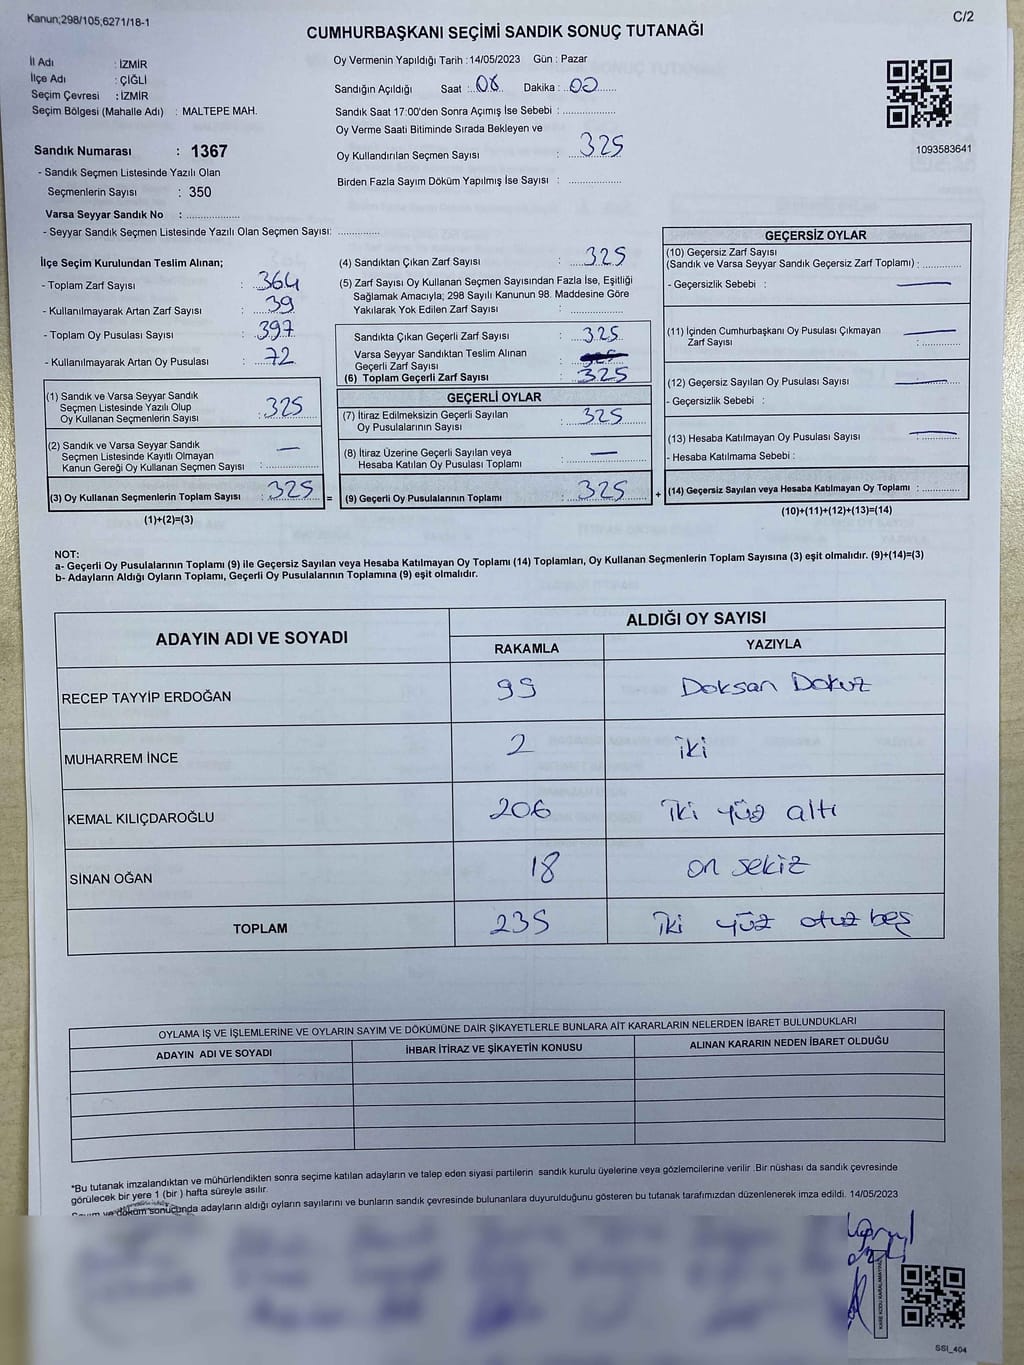 Kanun;298/105;6271/18-1
C/2
CUMHURBAŞKANI SEÇİMİ SANDIK SONUÇ TUTANAĞI
İl Adı : İZMİR
İlçe Adı : ÇİĞLİ
Seçim Çevresi : İZMİR
Seçim Bölgesi (Mahalle Adı) : MALTEPE MAH.
Oy Vermenin Yapıldığı Tarih :14/05/2023 Gün : Pazar
Sandığın Açıldığı Saat :..08. Dakika :..00......
Sandık Saat 17:00'den Sonra Açımış İse Sebebi : ..................
Oy Verme Saati Bitiminde Sırada Bekleyen ve
Oy Kullandırılan Seçmen Sayısı : 325
Birden Fazla Sayım Döküm Yapılmış İse Sayısı : ..................
1093583641
Sandık Numarası : 1367
- Sandık Seçmen Listesinde Yazılı Olan
Seçmenlerin Sayısı : 350
Varsa Seyyar Sandık No : ..................
- Seyyar Sandık Seçmen Listesinde Yazılı Olan Seçmen Sayısı: ..............
İlçe Seçim Kurulundan Teslim Alınan;
- Toplam Zarf Sayısı : 364
- Kullanılmayarak Artan Zarf Sayısı : 39
- Toplam Oy Pusulası Sayısı : 397
- Kullanılmayarak Artan Oy Pusulası : 72
(1) Sandık ve Varsa Seyyar Sandık
Seçmen Listesinde Yazılı Olup
Oy Kullanan Seçmenlerin Sayısı : 325
(2) Sandık ve Varsa Seyyar Sandık
Seçmen Listesinde Kayıtlı Olmayan
Kanun Gereği Oy Kullanan Seçmen Sayısı : —
(3) Oy Kullanan Seçmenlerin Toplam Sayısı : 325 =
(1)+(2)=(3)
(4) Sandıktan Çıkan Zarf Sayısı : 325
(5) Zarf Sayısı Oy Kullanan Seçmen Sayısından Fazla İse, Eşitliği
Sağlamak Amacıyla; 298 Sayılı Kanunun 98. Maddesine Göre
Yakılarak Yok Edilen Zarf Sayısı : ..................
Sandıkta Çıkan Geçerli Zarf Sayısı : 325
Varsa Seyyar Sandıktan Teslim Alınan
Geçerli Zarf Sayısı :
(6) Toplam Geçerli Zarf Sayısı : 325
GEÇERLİ OYLAR
(7) İtiraz Edilmeksizin Geçerli Sayılan
Oy Pusulalarının Sayısı : 325
(8) İtiraz Üzerine Geçerli Sayılan veya
Hesaba Katılan Oy Pusulası Toplamı : —
(9) Geçerli Oy Pusulalarının Toplamı : 325 +
GEÇERSİZ OYLAR
(10) Geçersiz Zarf Sayısı
(Sandık ve Varsa Seyyar Sandık Geçersiz Zarf Toplamı) : ............
- Geçersizlik Sebebi : —
(11) İçinden Cumhurbaşkanı Oy Pusulası Çıkmayan
Zarf Sayısı : —
(12) Geçersiz Sayılan Oy Pusulası Sayısı : —
- Geçersizlik Sebebi :
(13) Hesaba Katılmayan Oy Pusulası Sayısı : —
- Hesaba Katılmama Sebebi :
(14) Geçersiz Sayılan veya Hesaba Katılmayan Oy Toplamı : ............
(10)+(11)+(12)+(13)=(14)
NOT:
a- Geçerli Oy Pusulalarının Toplamı (9) ile Geçersiz Sayılan veya Hesaba Katılmayan Oy Toplamı (14) Toplamları, Oy Kullanan Seçmenlerin Toplam Sayısına (3) eşit olmalıdır. (9)+(14)=(3)
b- Adayların Aldığı Oyların Toplamı, Geçerli Oy Pusulalarının Toplamına (9) eşit olmalıdır.
ADAYIN ADI VE SOYADI
ALDIĞI OY SAYISI
RAKAMLA YAZIYLA
RECEP TAYYİP ERDOĞAN 99 Doksan Dokuz
MUHARREM İNCE 2 iki
KEMAL KILIÇDAROĞLU 206 iki yüz altı
SİNAN OĞAN 18 on sekiz
TOPLAM 235 iki yüz otuz beş
OYLAMA İŞ VE İŞLEMLERİNE VE OYLARIN SAYIM VE DÖKÜMÜNE DAİR ŞİKAYETLERLE BUNLARA AİT KARARLARIN NELERDEN İBARET BULUNDUKLARI
ADAYIN ADI VE SOYADI İHBAR İTİRAZ VE ŞİKAYETİN KONUSU ALINAN KARARIN NEDEN İBARET OLDUĞU
*Bu tutanak imzalandıktan ve mühürlendikten sonra seçime katılan adayların ve talep eden siyasi partilerin sandık kurulu üyelerine veya gözlemcilerine verilir .Bir nüshası da sandık çevresinde
görülecek bir yere 1 (bir ) hafta süreyle asılır.
Sayım ve döküm sonucunda adayların aldığı oyların sayılarını ve bunların sandık çevresinde bulunanlara duyurulduğunu gösteren bu tutanak tarafımızdan düzenlenerek imza edildi. 14/05/2023
KARE KODU KARALAMAYINIZ
SSI_404